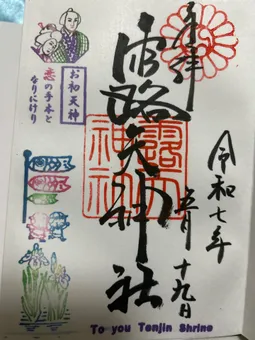 奉拝
露天神社
令和七年
五月
十九日
お初天神
恋の手本と
なりにけり
露天神社
To you Tenjin Shrine